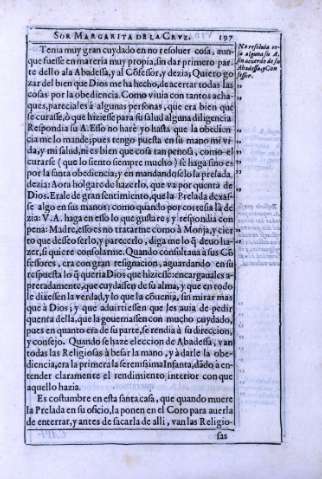 SOR MARGARITA DE LA CRVZ. 197
Tenia muy gran cuydado en no resoluer cosa, aun-
que fuesse en materia muy propia, sin dar primero par-
te dello a la Abadessa, y al Cõfessor, y dezia; Quiero go-
zar del bien que Dios me ha hecho, de acertar todas las
cosas por la obediencia. Como viuia con tantos acha-
ques, pareciales à algunas personas, que era bien que
se curasse, ò que hiziesse para su salud alguna diligencia.
Respondia su A. Esso no harè yo hasta que la obedien
cia me lo mande; pues tengo puesta en su mano mi vi-
da, y mi salud, ni es bien que cosa tan penosa, como el
curarse (que lo siento siempre mucho) se haga sino es
por la santa obediencia; y en mandandoselo la prelada,
dezia: Aora holgarè de hazerlo, que va por quenta de
Dios. Erale de gran sentimiento, que la Prelada dexas-
se algo en sus manos; como quando por cortesia la de-
zia: V. A. haga en esso lo que gustare; y respondia con
pena: Madre, esso es no tratarme como à Monja, y cier
to que desseo serlo, y parecerlo, diga me lo q̃ deuo ha-
zer, si quiere consolarme. Quando consultaua à sus Cõ
fessores, era con gran resignacion, aguardando en su
respuesta lo q̃ queria Dios que hiziesse: encargauales a-
pretadamente, que cuydassen de su alma, y que en todo
le dixessen la verdad, y lo que la cõuenia, sin mirar mas
que à Dios; y que aduirtiessen que les auia de pedir
quenta della, que la gouernassen con mucho cuydado,
pues en quanto era de su parte, se rendia à su direccion,
y consejo. Quando se haze eleccion de Abadessa, van
todas las Religiosas à besar la mano, y à darle la obe-
diencia, era la primera la serenissima Infanta, dãdo à en-
tender claramente el rendimiento interior con que
aquello hazia.
Es costumbre en esta santa casa, que quando muere
la Prelada en su oficio, la ponen en el Coro para auerla
de enterrar, y antes de sacarla de alli, van las Religio-
sas
No resoluia co-
sa alguna su A.
sin acuerdo de su
Abadessa, y Con
fessor.